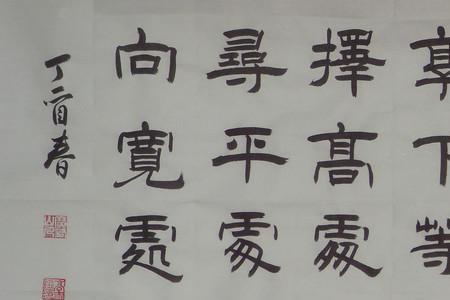 享下等
擇高處
尋平處
向寬處
丁酉春